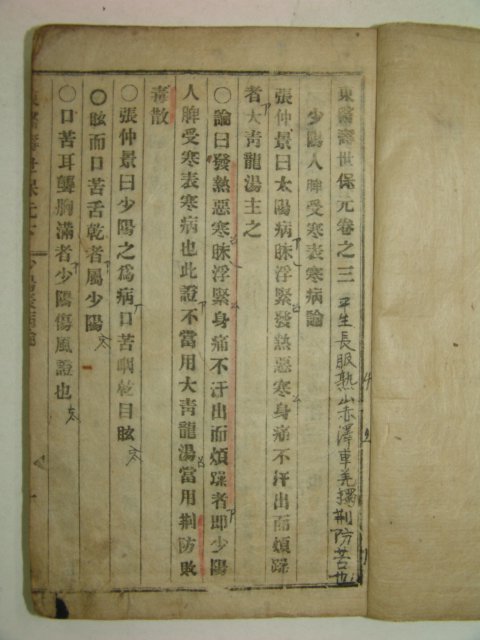 東醫壽世保元卷之三
少陽人脾受寒表寒病論
平生長服熟山朱澤車羌獨荊防苦也
張仲景曰太陽病脉浮緊發熱惡寒身痛不汗出而煩躁
者大靑龍湯主之
○論曰發熱惡寒脉浮緊身痛不汗出而煩躁者卽少陽
人脾受寒表寒病也此證不當用大靑龍湯當用荊防敗
毒散
○張仲景曰少陽之爲病口苦咽乾目眩
○眩而口苦舌乾者屬少陽
○口苦耳聾胸滿者少陽傷風證也